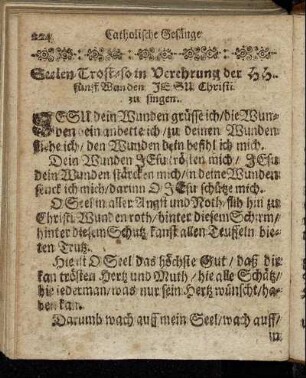 224 Catholische Gesänge
Seelen Trost / so in Verehrung der HH.
fünff Wunden JESU Christi
zu singen.
JESU dein Wunden grüsse ich / die Wun-
den dein anbette ich / zu deinen Wunden
fliehe ich / den Wunden dein befihl ich mich.
Dein Wunden JEsu trösten mich / JEsu
dein Wunden stärcken mich / in deine Wunden
senck ich mich / darumb O JEsu schütze mich.
O Seel in aller Angst und Noth / flih hin zu
Christi Wunden roth / hinter diesem Schirm /
hinter diesem Schutz kanst allen Teuffeln bie-
ten Trutz.
Hie ist O Seel das höchste Gut / daß dir
kan trösten Hertz und Muth / hie alle Schätz /
hie jederman / was nur sein Hertz wünscht / ha-
ben kan.
Darumb wach auff mein Seel / wach auff /
in